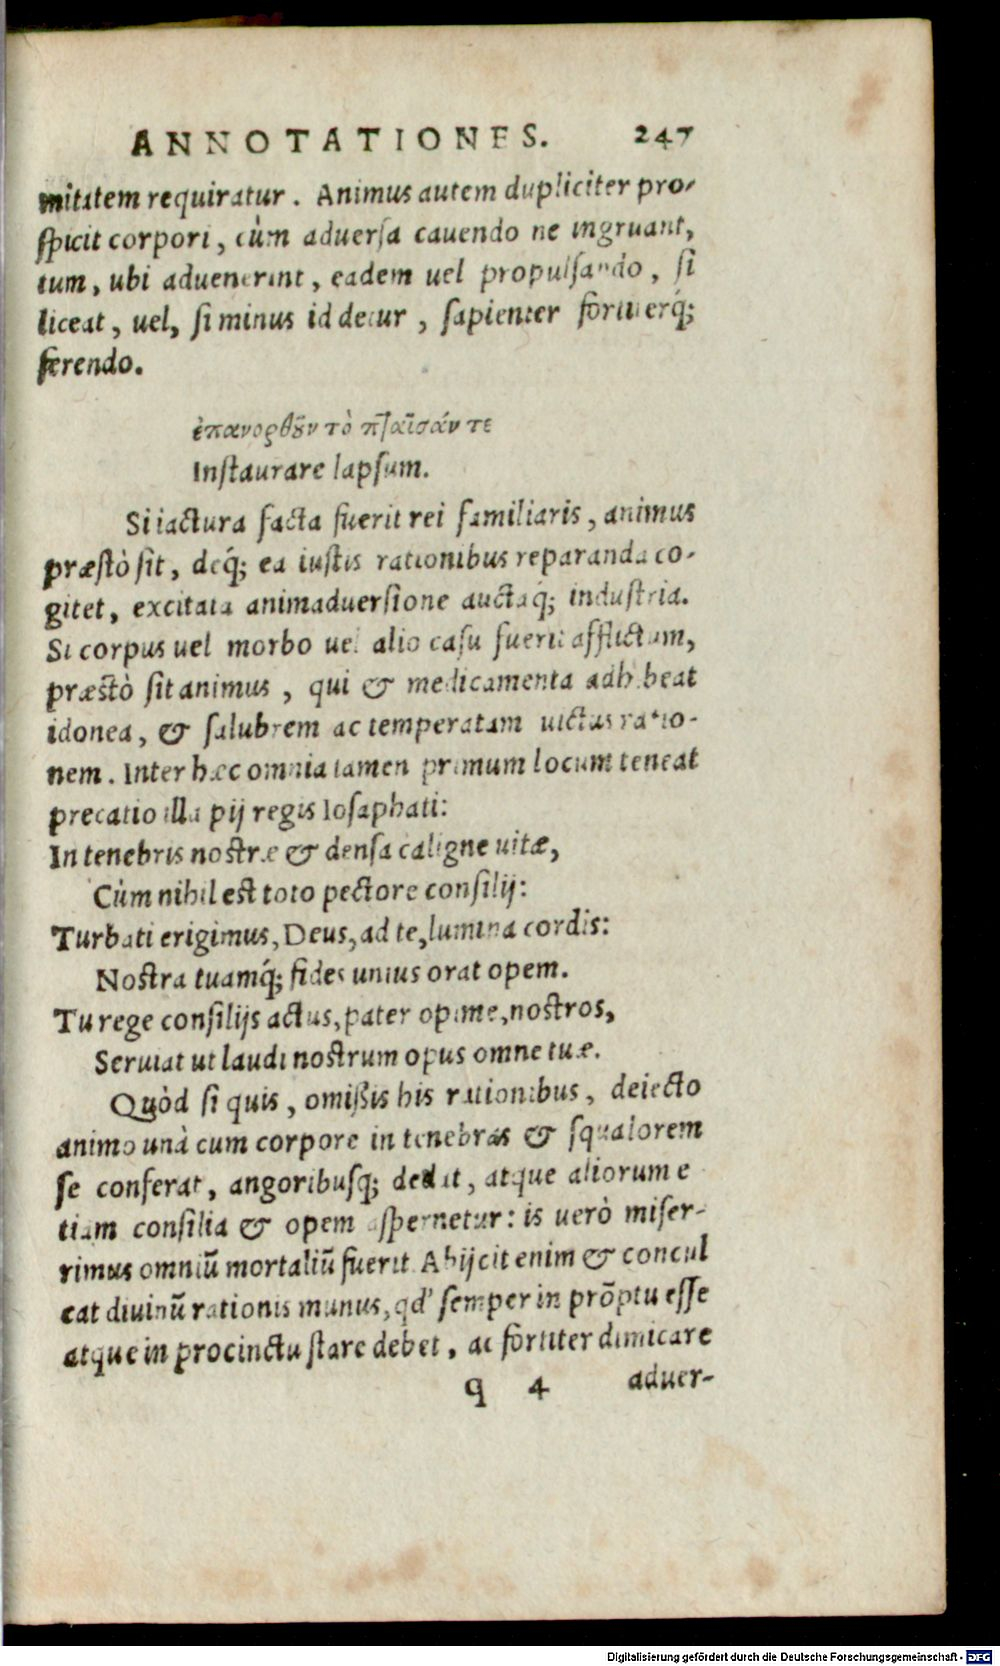 ANNOTATIONES. 247
mitatem requiratur. Animus autem dupliciter pro-
spicit corpori, cùm aduersa cauendo ne ingruant,
tum, ubi aduenerint, eadem uel propulsando, si
liceat, uel, si minus id detur, sapienter fortiterq́;
ferendo.
ἐπανορθοῦν τὸ πταῖσάν τε
Instaurare lapsum.
Si iactura facta fuerit rei familiaris, animus
præstò sit, deq́; ea iustis rationibus reparanda co-
gitet, excitata animaduersione auctaq́; industria.
Si corpus uel morbo uel alio casu fuerit afflictum,
præstò sit animus, qui & medicamenta adhibeat
idonea, & salubrem ac temperatam uictus ratio-
nem. Inter hæc omnia tamen primum locum teneat
precatio illa pij regis Iosaphati:
In tenebris nostræ & densa caligne uitæ,
Cùm nihil est toto pectore consilij:
Turbati erigimus, Deus, ad te, lumina cordis:
Nostra tuamq́; fides unius orat opem.
Tu rege consilijs actus, pater optime, nostros,
Seruiat ut laudi nostrum opus omne tuæ.
Quòd si quis, omißis his rationibus, deiecto
animo unà cum corpore in tenebras & squalorem
se conferat, angoribusq; dedat, atque aliorum e
tiam consilia & opem aspernetur: is uerò miser-
rimus omniũ mortaliũ fuerit. Abijcit enim & concul
cat diuinũ rationis munus, qd' semper in prõptu esse
atque in procinctu stare debet, ac fortiter dimicare
q 4 aduer-
Digitalisierung gefördert durch die Deutsche Forschungsgemeinschaft - DFG